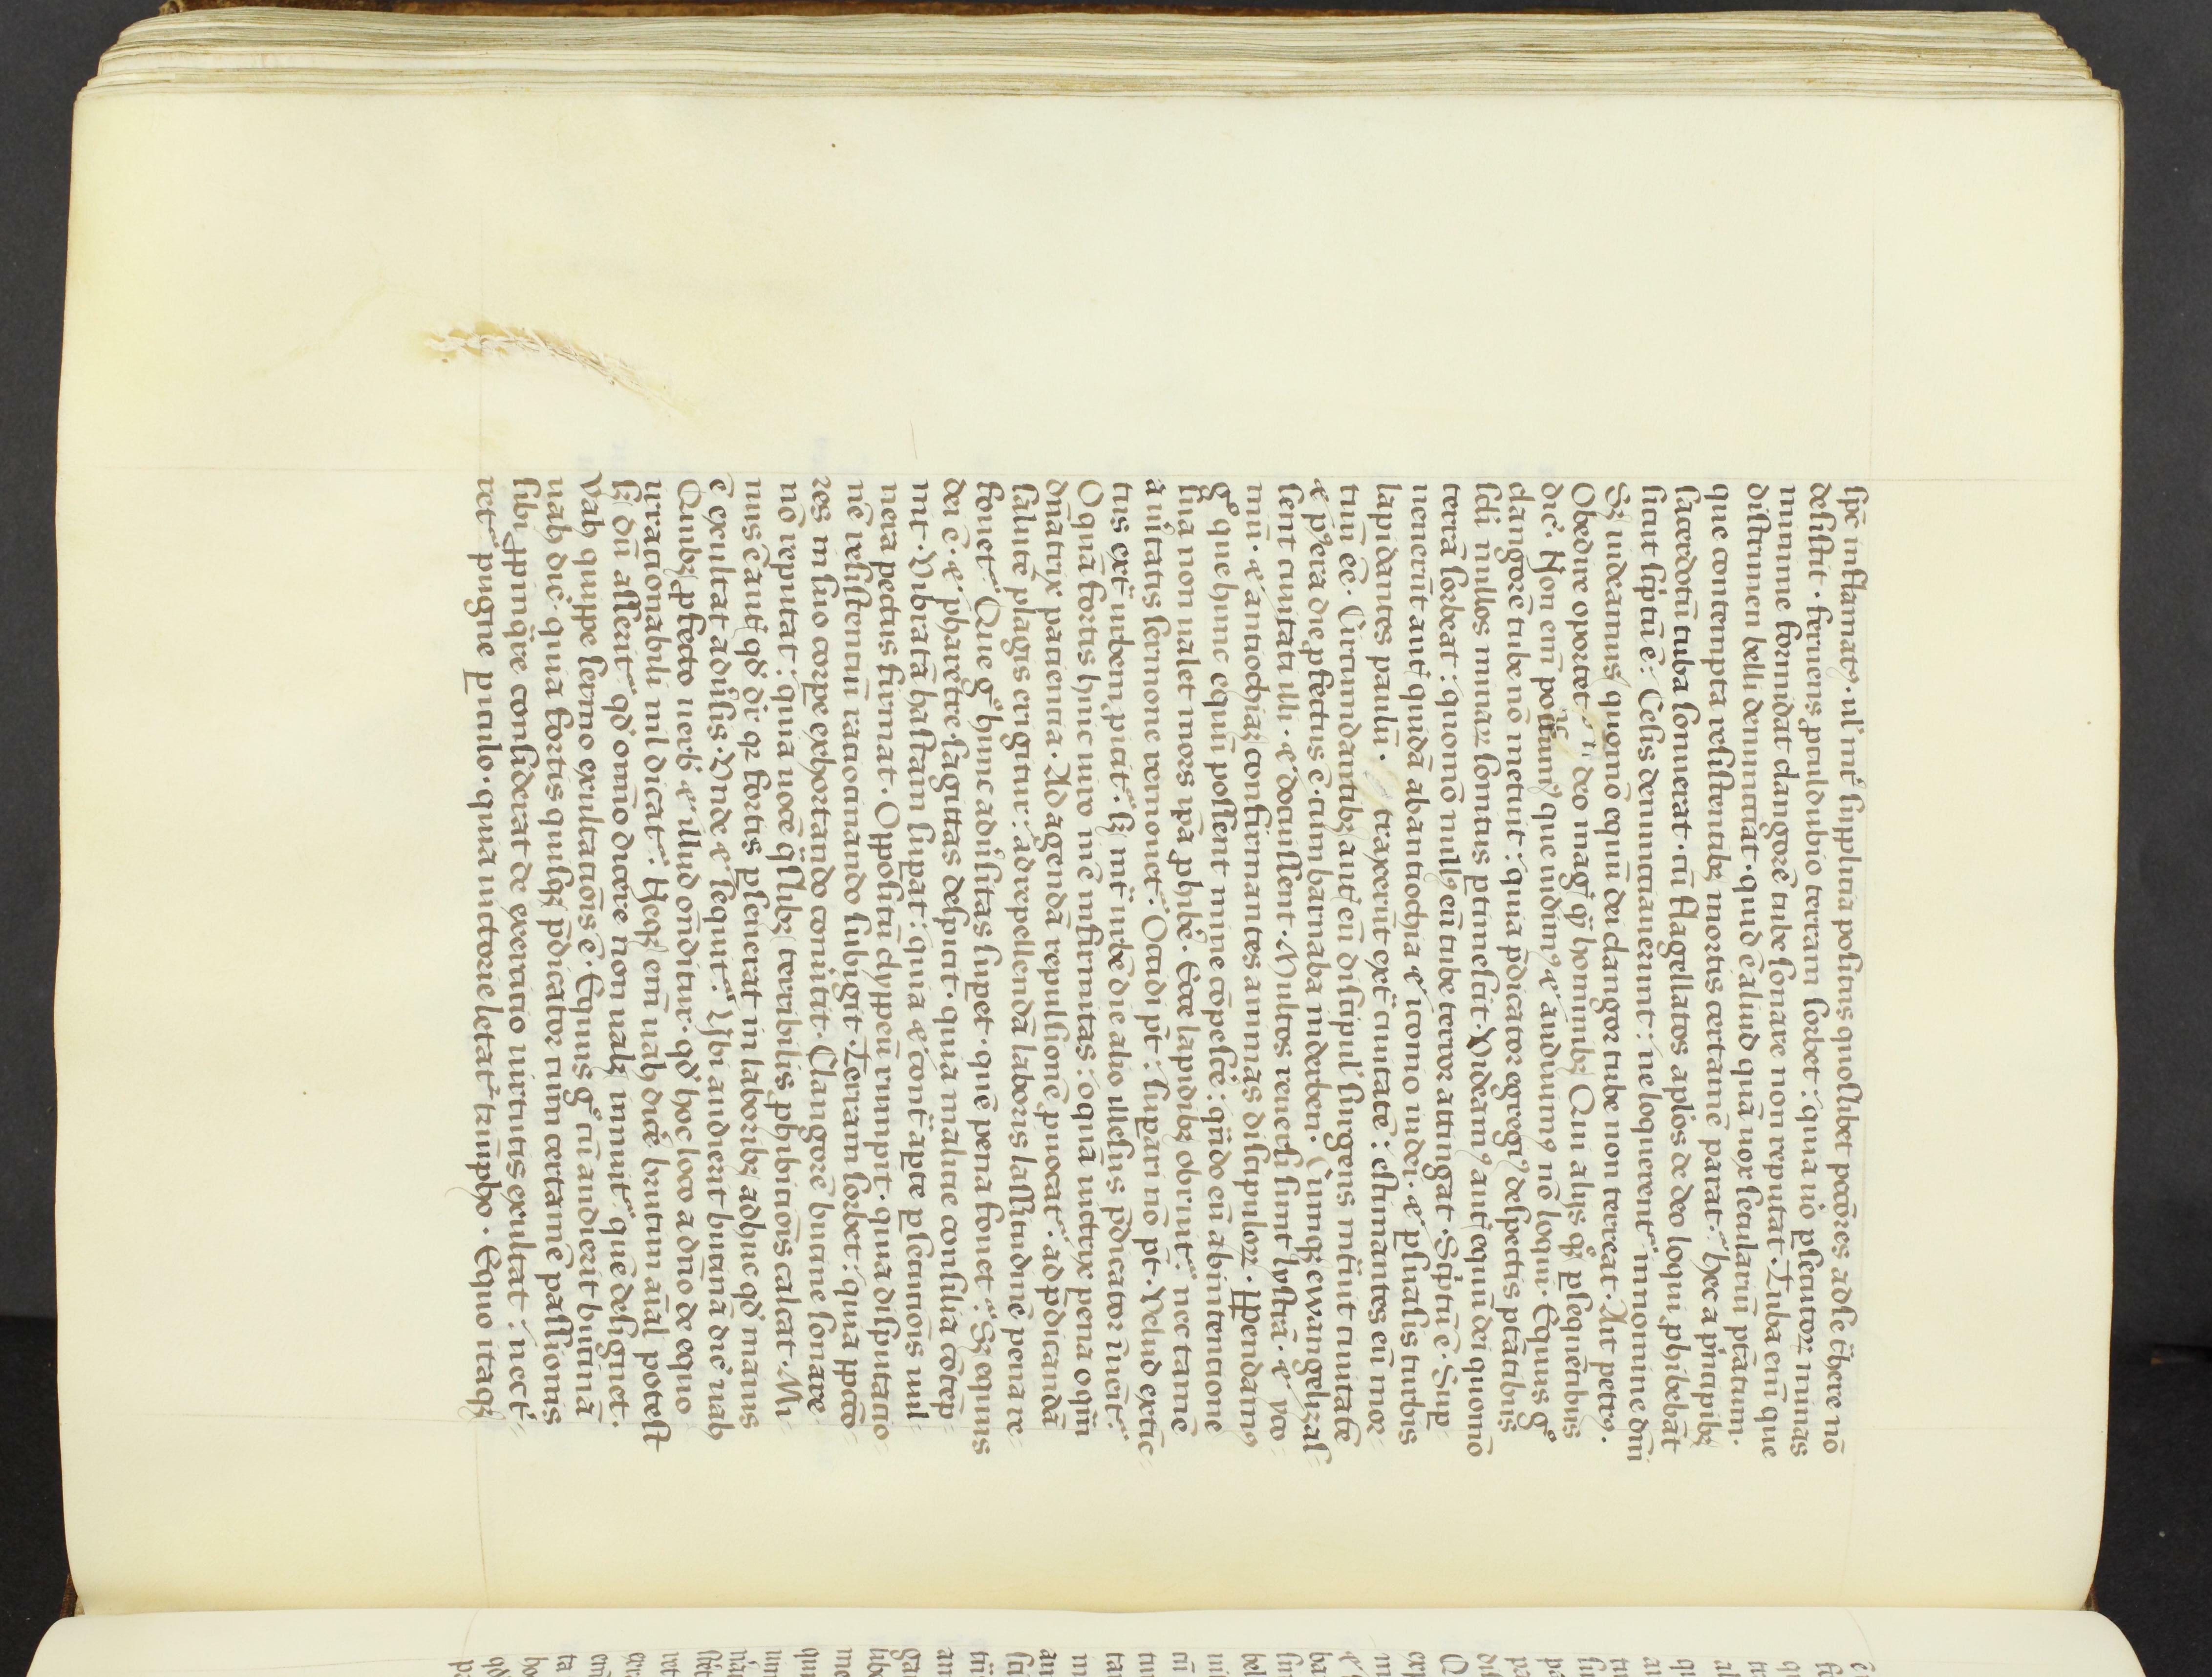 spē inflāmat⁹. ul' int' supplicia positus quoslibet pectōres ad se t̄here nō
desistit. feruens p̄culdubio terram sorbet: quia uō p̄secutoꝝ minas
minime formidat clangorē tube sonare non reputat. Tuba eni que
discrimen belli denunciat. quid ē aliud quā uox seculariū p̄tātum.
que contempta resistentibꝫ mortis certamē parat: hec a p̄ncipibꝫ
sacerdotū tuba sonuerat. cū flagellatos ap̄los de deo loqui phibebāt
sicut sc̄ptū ē: Cesis denunciauerunt: ne loquerent̄ in nomine dn̄i
Sꝫ uideamus quomō equū dei clangor tube non terreat. Ait petr⁹.
Obedire oportet deo magⁱ q̄ hominibꝫ Qui alijs q̊ꝫ p̄sequētibus
dic̄. Non eni possum⁹ que uidim⁹ ⁊ audiuim⁹ nō loqui. Equus g°
clangorē tube nō metuit: quia p̄dicator egregi⁹ despectis p̄tātibus
sc̄li nullos minaꝝ sonitus p̄timescit. Videam⁹ aut̄ equū dei quomō
terrā sorbeat: quomō null⁹ eū tube terror attingat. Sc̄ptū ē. Sup
uenerūt aut̄ quidā ab antiochia ⁊ iconio iudei. ⁊ p̄suasis turbis
lapidantes paulū. traxerūt ext̄ ciuitatē: estimantes eū mor
tuū eē. Circumdantibꝫ aut̄ eū discipul' surgens int̄uit ciuitatē
⁊ p̄tera die p̄fectus ē. cum barnaba in derben. Cumqꝫ ewangelizas
sent ciuitati illi. ⁊ docuissent. Multos reuersi sunt lystrā. ⁊ yco
niū. ⁊ antiochiaꝫ confirmantes animas discipuloꝝ. Ppendam⁹
g° que hunc equū possent mine cōpesce: q̄ndo eū ab intencione
sua non ualet mors ip̄a phibē. Ecce lapidibꝫ obruit̄: nec tamē
a uitatis sermone remouet̄. Occidi pt̄: supari nō pt̄. Velud extīc
tus ext̄ urbem p̄icit̄: sꝫ int̄ urbē die alio illesus p̄dicator inēit̄.
O quā fortis huic uiro inē infirmitas: o quā uictrix pena o q̄n
dn̄atrix paciencia. Ad agendā repulsionē p̄uocat̄. ad p̄dicandā
salutē plagis erigitur: ad repellendā laboris lassitudinē pena re
fouet̄. Que g° hunc adūsitas supet. quē pena fouet: Sꝫ equus
dei ē. ⁊ pharetre sagittas despicit. quia maline consilia cōtēp
nit. Vibratā hastam supat: quia ⁊ cont̄ apte p̄secucōis uul
nera pectus firmat. Opositū clypeū rumpit. quia disputacio
nē resistenciū raciocinando subigit. Terram sorbet: quia ppctō
res in suo corpe exhortando conuertit. Clangorē bucine sonare
nō reputat: quia uocē q̄slibꝫ terribilis phibicōis calcat. Mi
nus ē aut̄ qd̄ dr̄ qꝫ fortis p̄seuerat in laboribꝫ adhuc qd̄ maius
ē exultat aduūsis. Vnde ⁊ sequit̄: Ubi audierit bucinā dic̄ uah
Quibꝫ p̄fecto uerb̄. ⁊ illud ōnditur. qd̄ hoc loco a dn̄o de equo
irracionabili nil dicat̄: Neqꝫ eni uah dic̄e brutum aīal potest
sꝫ dū asserit̄ qd̄ omīo dicere non ualꝫ innuit̄ quē designet.
Vah quippe sermo exultacōis ē. Equus g° cū audierit bucinā
uah dic̄. quia fortis quisqꝫ p̄dicator cum certamē passionis
sibi ppinq̄re considerat de exercicio uirtutis exultat: nec t̄
ret̄ pugne p̄iculo. quia uictorie letat̄ triūpho. Equo itaqꝫ